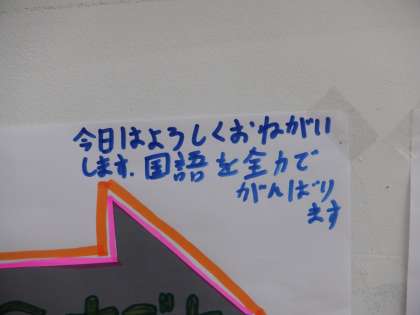 今日はよろしくおねがい
します.国語を全力で
がんばり
ます